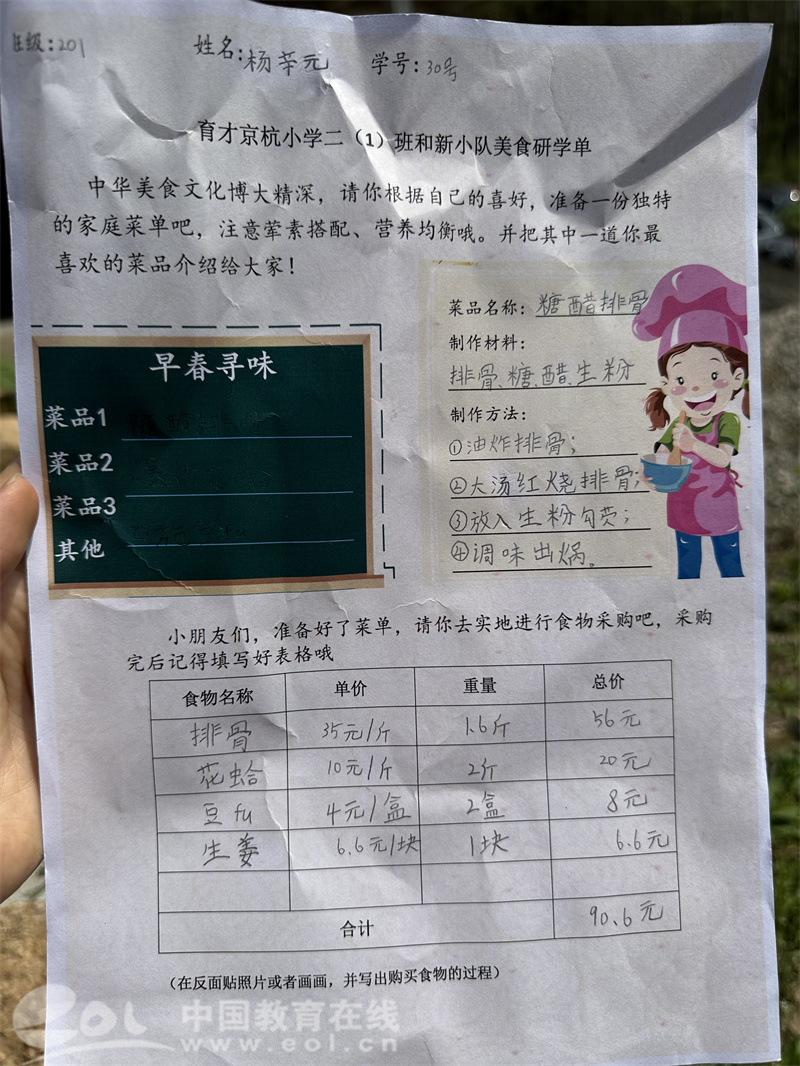 班级：201 姓名：杨莘元 学号：30号
育才京杭小学二（1）班和新小队美食研学单
中华美食文化博大精深，请你根据自己的喜好，准备一份独特
的家庭菜单吧，注意荤素搭配、营养均衡哦。并把其中一道你最
喜欢的菜品介绍给大家！
早春寻味
菜品1
菜品2
菜品3
其他
菜品名称：糖醋排骨
制作材料：
排骨、糖、醋、生粉
制作方法：
①油炸排骨；
②大汤红烧排骨；
③放入生粉勾芡；
④调味出锅。
小朋友们，准备好了菜单，请你去实地进行食物采购吧，采购
完后记得填写好表格哦
食物名称 单价 重量 总价
排骨 35元/斤 1.6斤 56元
花蛤 10元/斤 2斤 20元
豆fu 4元/盒 2盒 8元
生姜 6.6元/块 1块 6.6元
合计 90.6元
（在反面贴照片或者画画，并写出购买食物的过程）
eol 中国教育在线
www.eol.cn